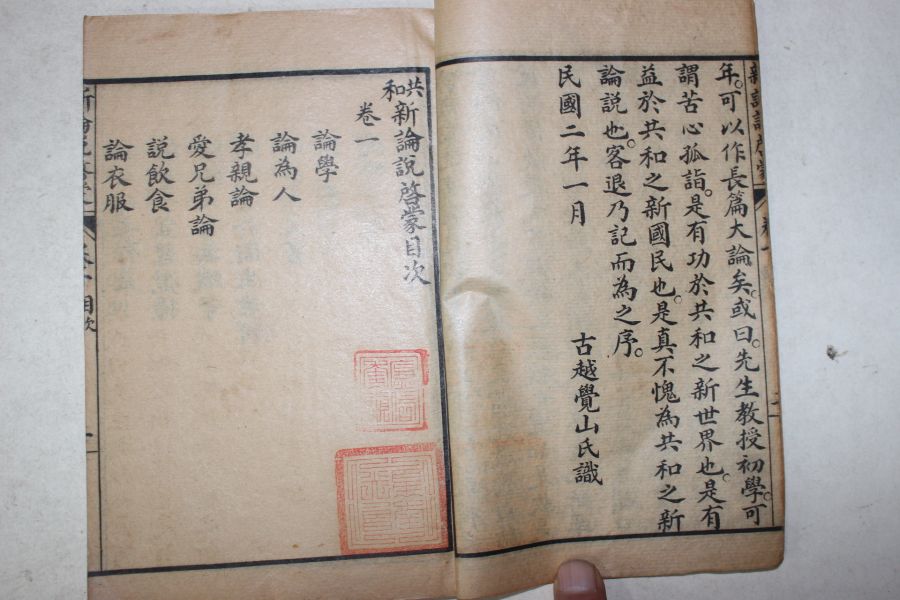 年。可以作長篇大論矣。或曰。先生教授初學。可
謂苦心孤詣。是有功於共和之新世界也。是有
益於共和之新國民也。是真不愧為共和之新
論說也。客退乃記而為之序。
民國二年一月
古越覺山氏識
共和新論說啓蒙目次
卷一
論學
論為人
孝親論
愛兄弟論
說飲食
論衣服
目次